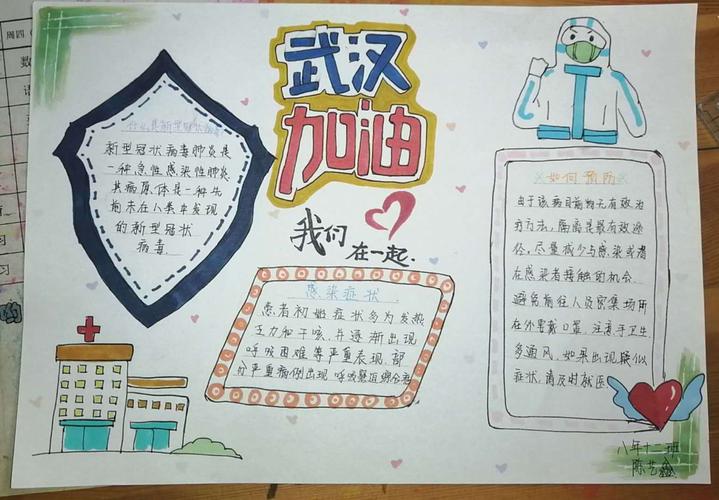 武汉
加油
我们
在一起.
什么是新型冠状病毒
新型冠状病毒肺炎是
一种急性感染性肺炎
其病原体是一种先
前未在人类中发现
的新型冠状
病毒.
感染症状
患者初始症状多为发热
乏力和干咳,并逐渐出现
呼吸困难等严重表现,部
分严重病例出现呼吸窘迫综合症
如何预防
由于该病目前尚无有效治
疗方法,隔离是最有效途
径,尽量减少与感染或潜
在感染者接触的机会.
避免前往人员密集场所
在外要戴口罩,注意手卫生
多通风,如果出现疑似
症状,请及时就医
八年十二班
陈艺
周四
数
语
习